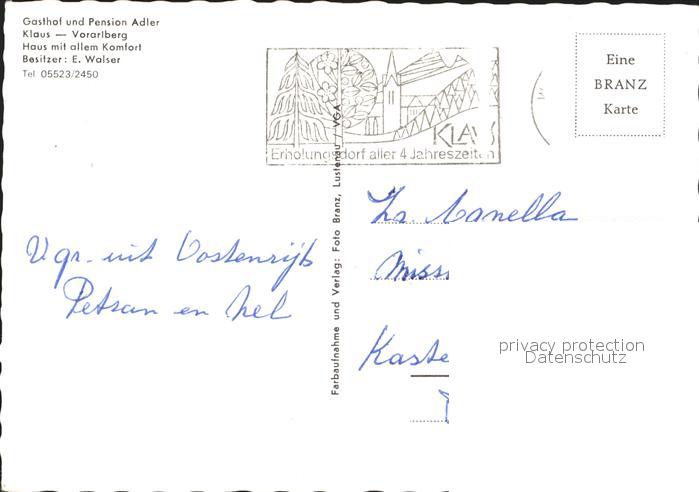 Gasthof und Pension Adler
Klaus — Vorarlberg
Haus mit allem Komfort
Besitzer: E. Walser
Tel. 05523/2450
KLAUS
Erholungsdorf aller 4 Jahreszeiten
Eine
BRANZ
Karte
Farbaufnahme und Verlag: Foto Branz, Lustenau / VGA
Vgr. uit Oostenrijk
Petran en Nel
privacy protection
Datenschutz